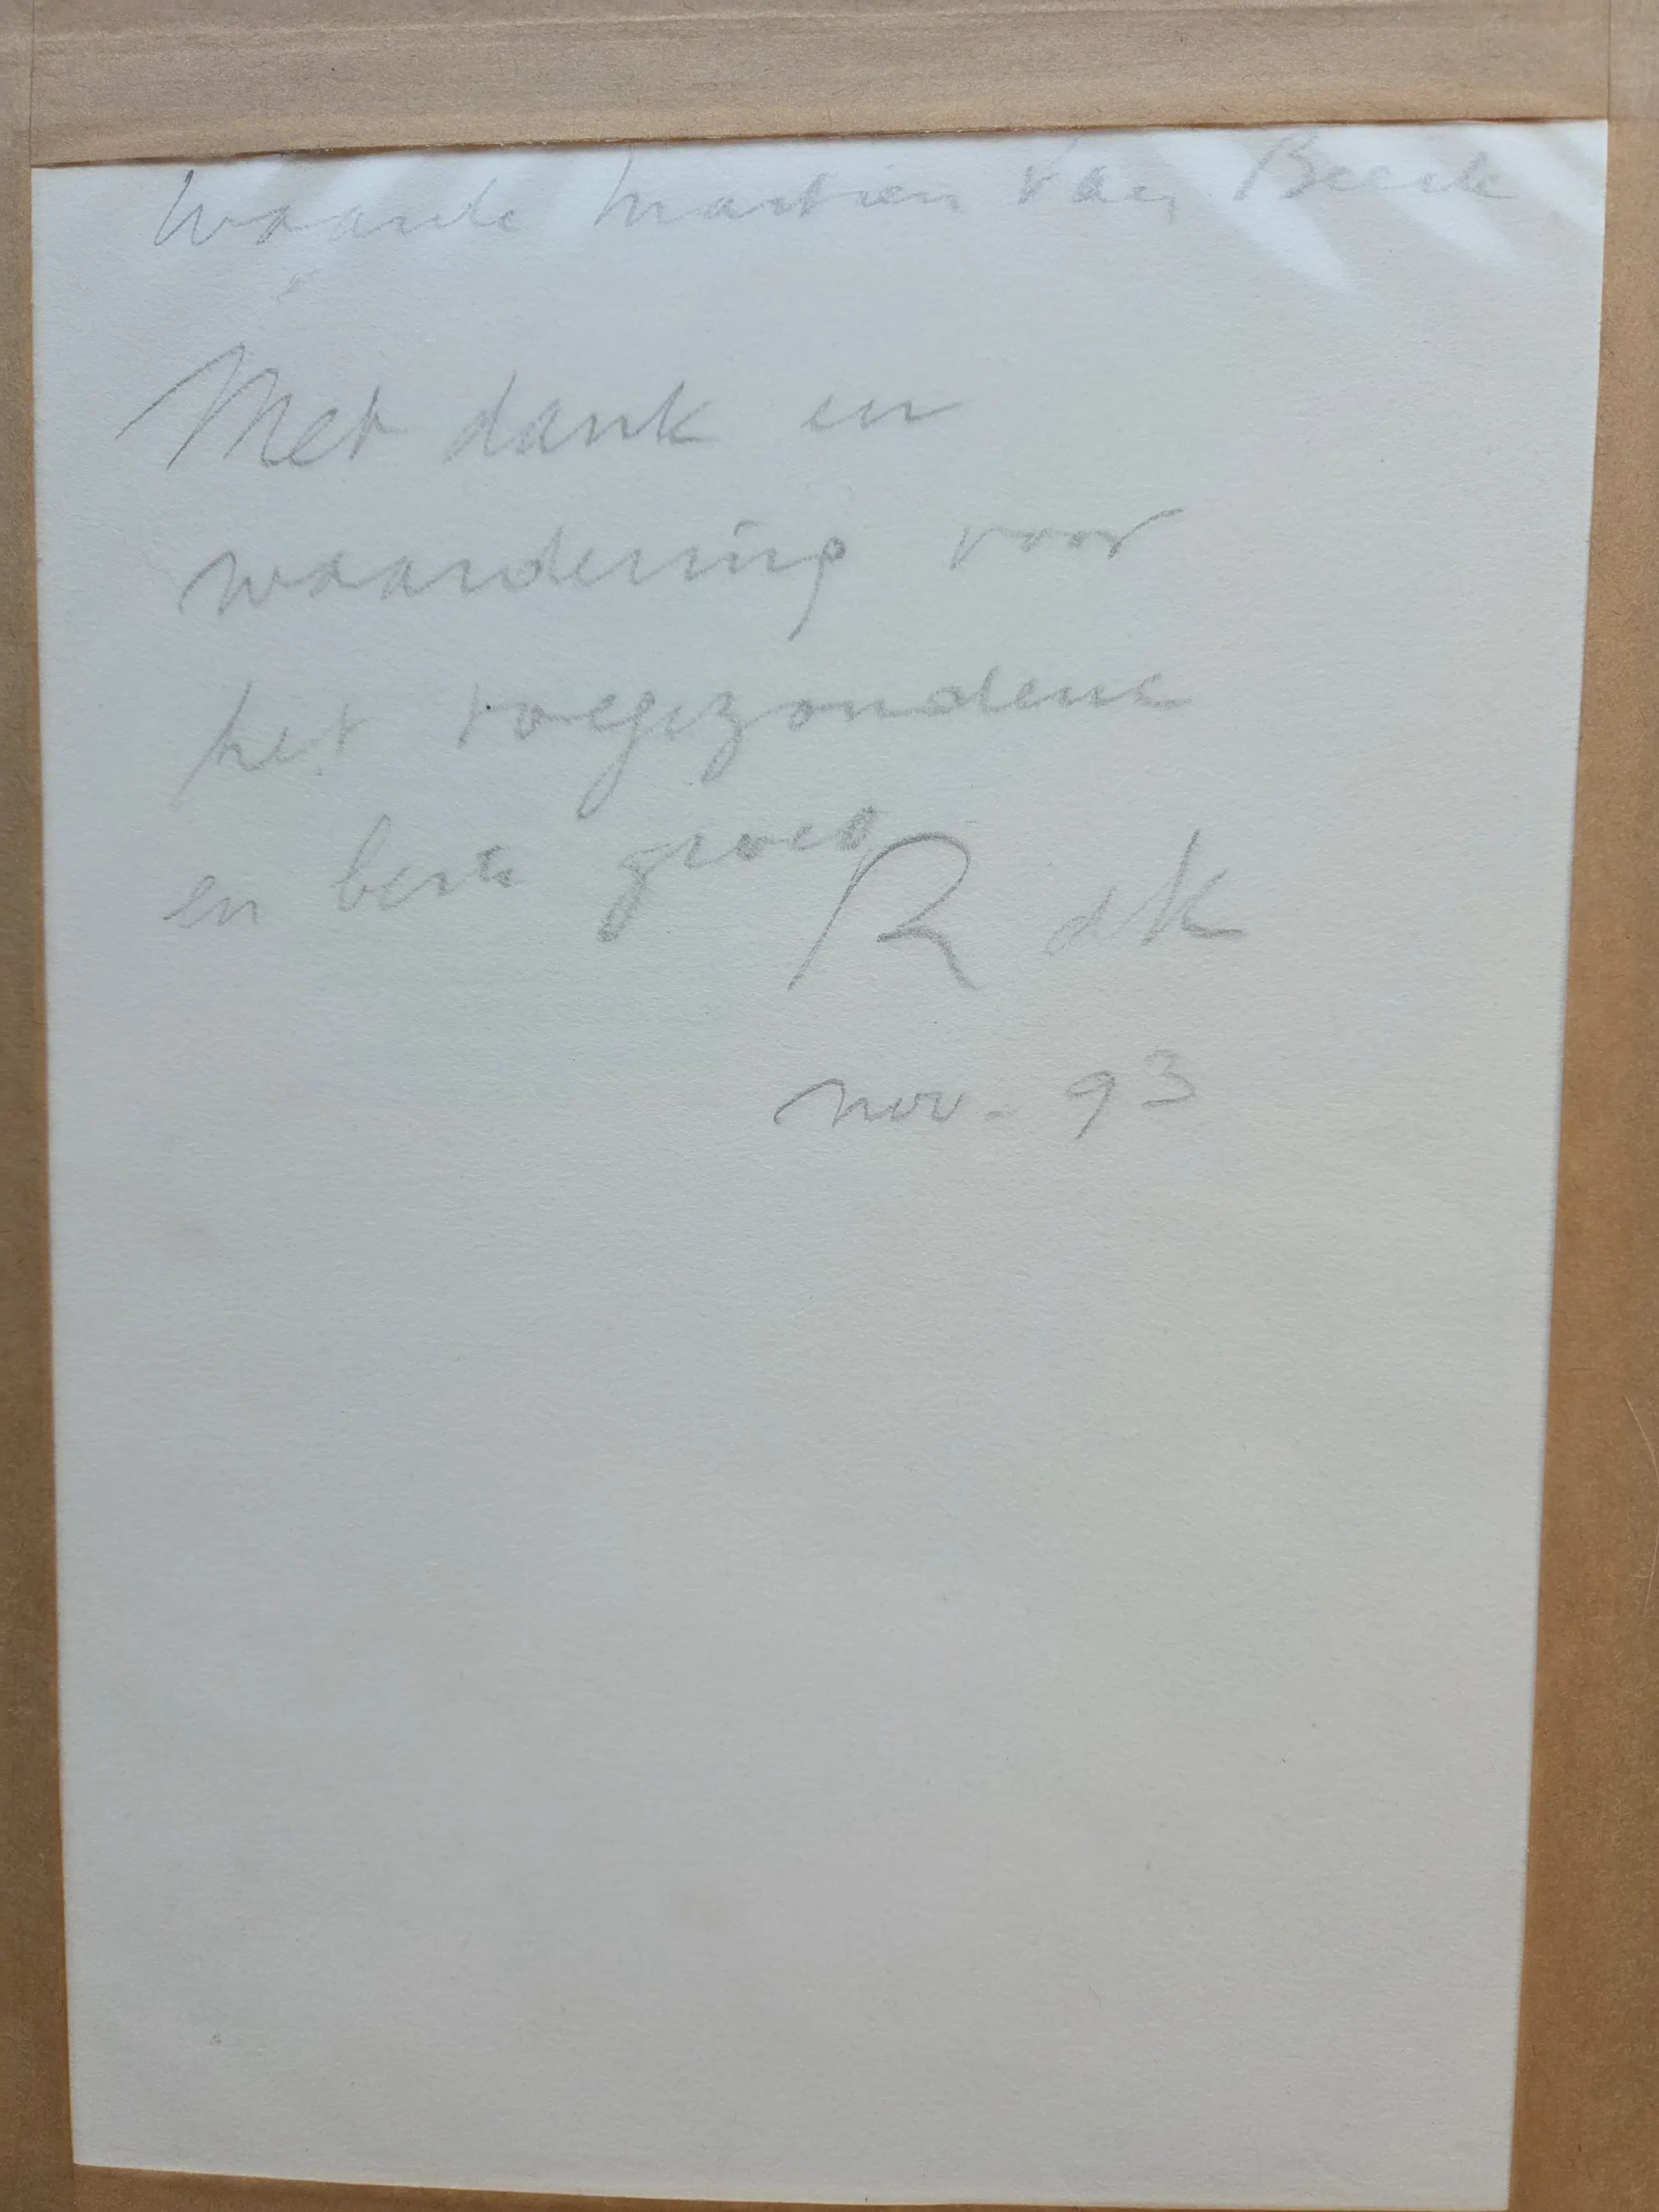 Waarde Martien van Beeck
Met dank en
waardering voor
het toegezondene
en beste groet
R dK
nov. 93